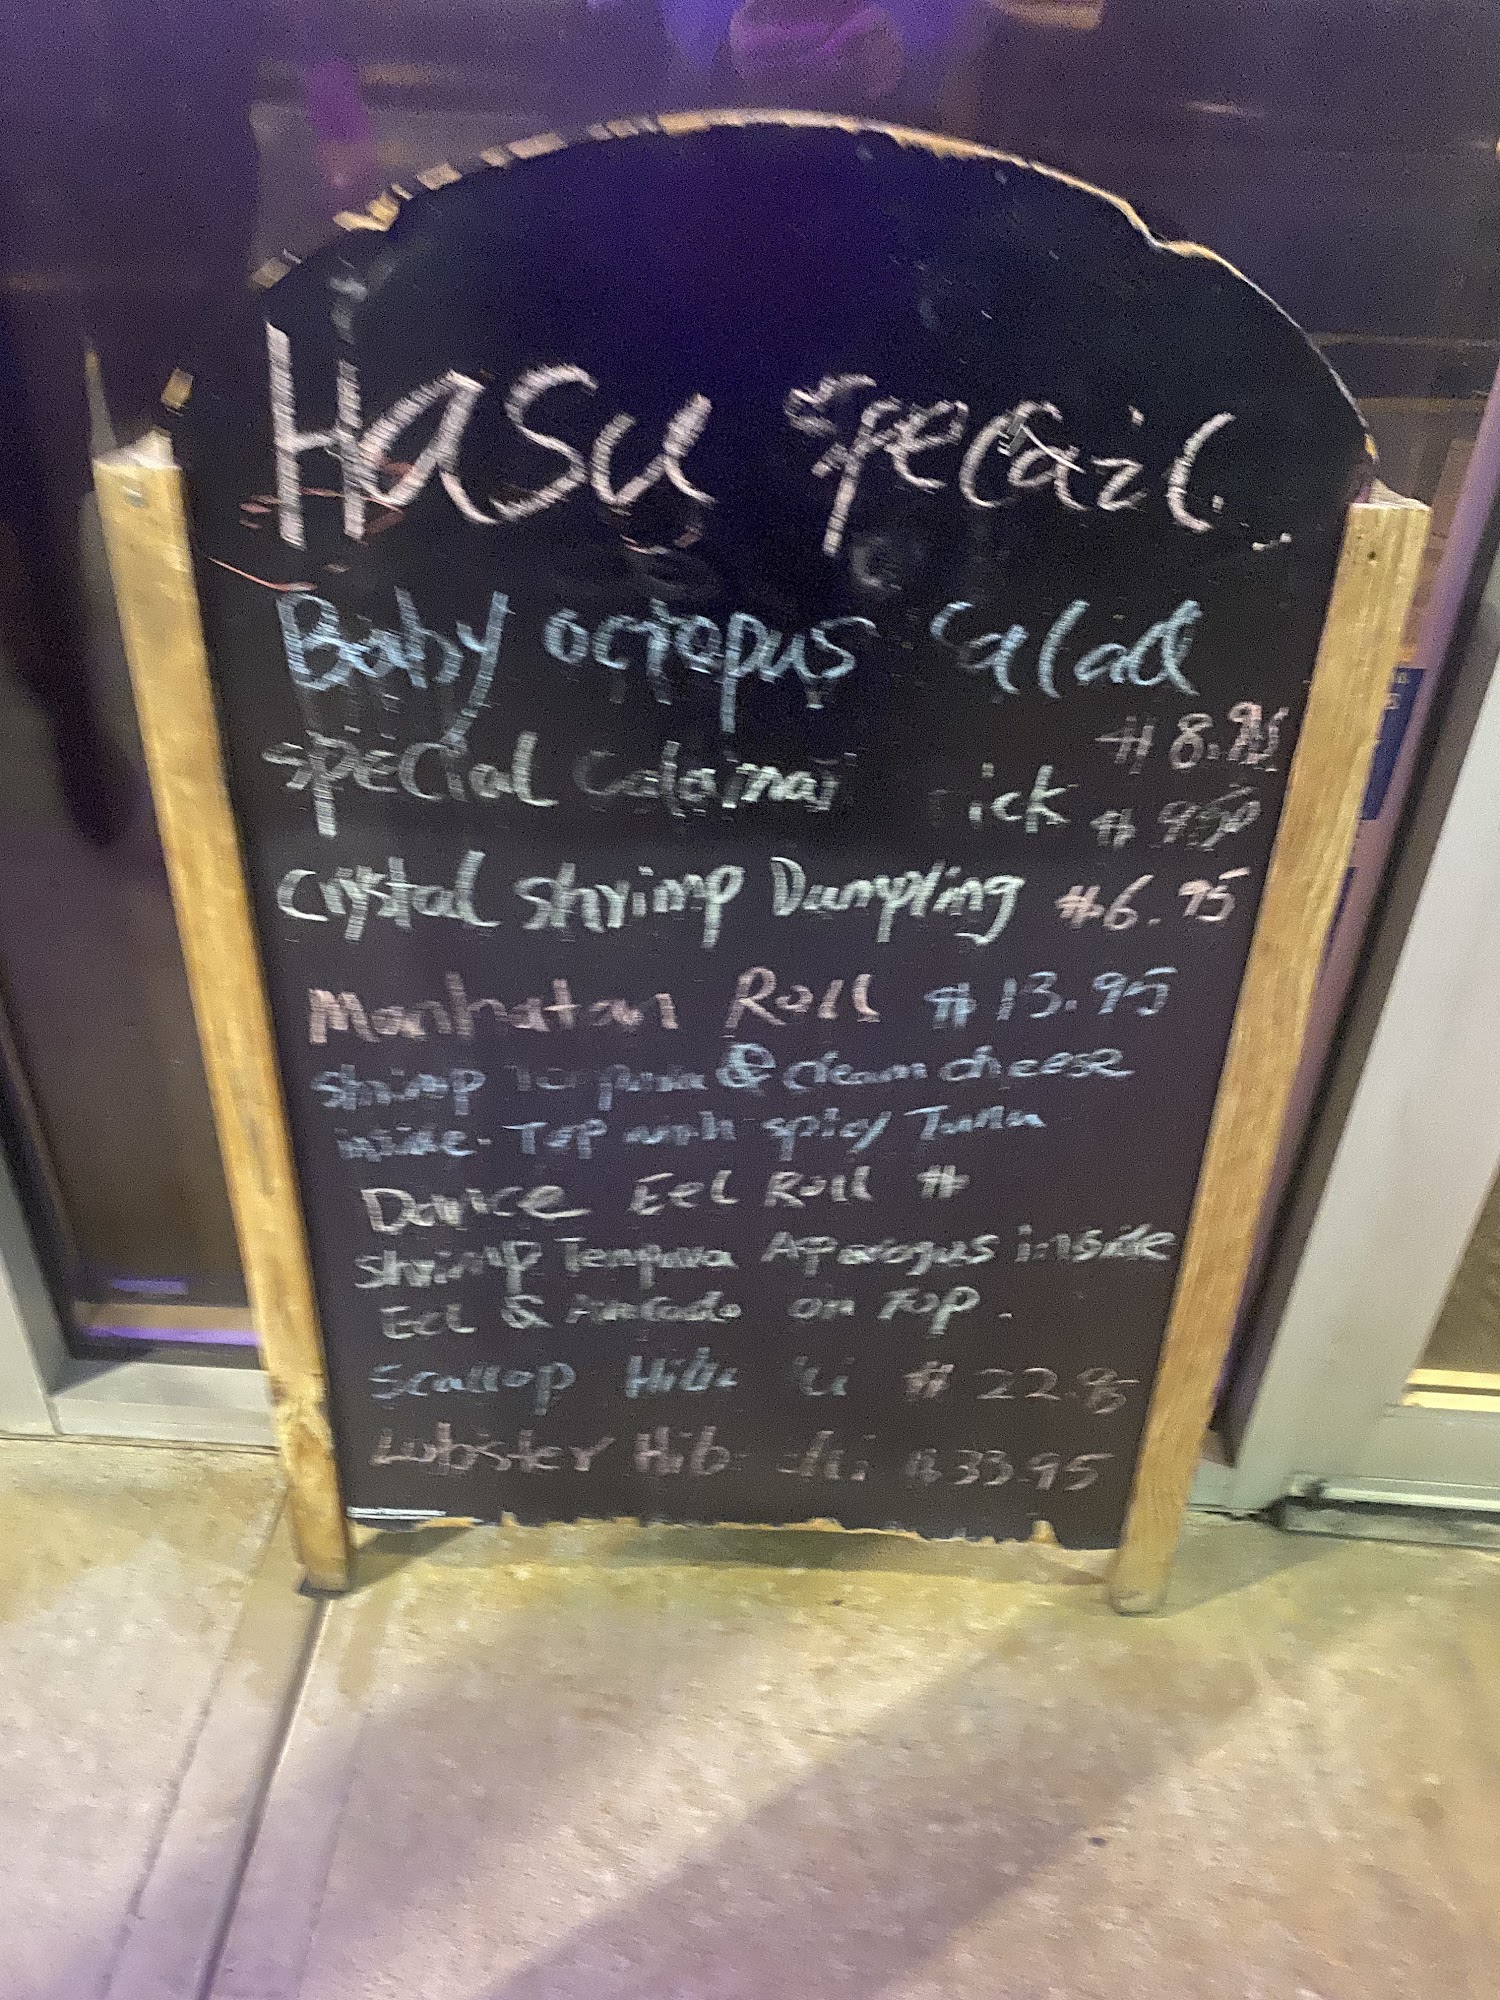 Hasu specail
Baby octopus Salad
$8.95
special calamai ick $9.50
Crystal shrimp Dumpling $6.95
Manhatan Roll $13.95
shrimp & cream cheese
inside. Top with spicy Tuna
Dance Eel Roll $
shrimp Tempura inside
Eel & Avocado on Top.
Scallop $22.95
Lobster $33.95